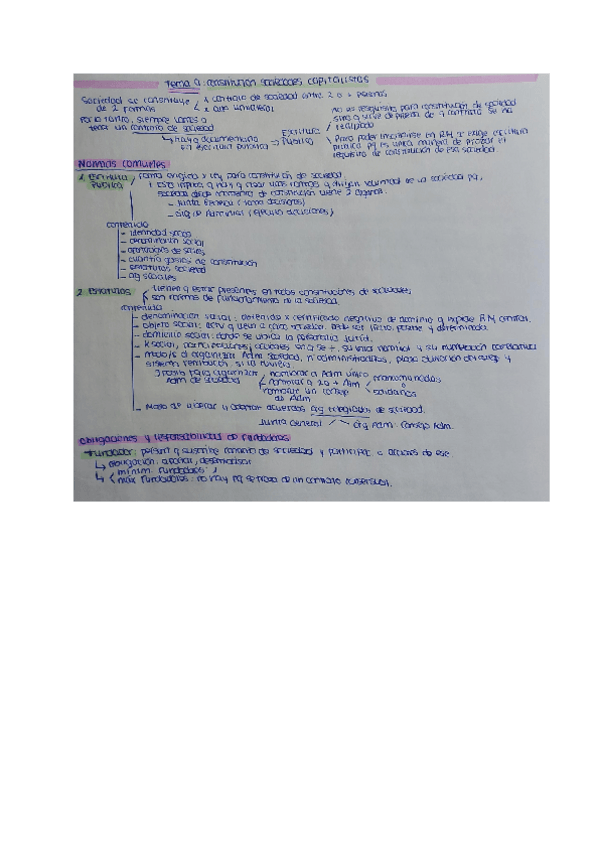 Tema 9: constitución sociedades capitalistas
Sociedad se constituye de 2 formas
x contrato de sociedad entre 2 o + personas
x acto unilateral
Por lo tanto, siempre vamos a tener un contrato de sociedad
hay q documentarlo en escritura pública
Escritura Pública
no es requisito para constitución de sociedad sino q sirve de prueba de q contrato se ha realizado
Para poder inscribirse en RM se exige escritura pública pq es única manera de probar el requisito de constitución de esa sociedad.
Normas comunes
1. Escritura Pública
forma exigida x ley para constitución de sociedad
esto implica q hay q crear unos órganos q voluntad de la sociedad pq,
sociedad desde momento de constitución tiene 2 órganos.
- Junta General (toma decisiones)
- órg de Administ (ejecuta decisiones)
contenido
- identidad socios
- denominación social
- aportación de socios
- cuantía gastos de constitución
- estatutos sociedad
- órg sociales
2. Estatutos
tienen q estar presentes en todas constituciones de sociedades
son normas de funcionamiento de la sociedad.
contenido
- denominación social: obtenida x certificado negativo de dominio q expide RM central.
- objeto social: actv q lleva a cabo sociedad. Debe ser lícito, posible y determinado.
- domicilio social: donde se ubica la persona juríd.
- K social, participaciones, acciones en q se ÷, su valor nominal y su numeración correlativa
- modo/s d organizar Adm sociedad, nº administradores, plazo duración del cargo y sistema retribución si lo tuviera
3 modos para organizar Adm de sociedad
nombrar a Adm único
nombrar a 2 o + Adm
mancomunados o solidarios
nombrar un consejo de Adm
- Modo de deliberar y adoptar acuerdos órg colegiados de sociedad.
Junta General
órg Adm: Consejo Adm.
Obligaciones y responsabilidad de fundadores
Fundador: persona q suscribe contrato de sociedades y participac o acciones de ese.
obligación: aportar, desembolsar
mínim fundadores: 1
máx fundadores: no hay pq se trata de un contrato consensual.